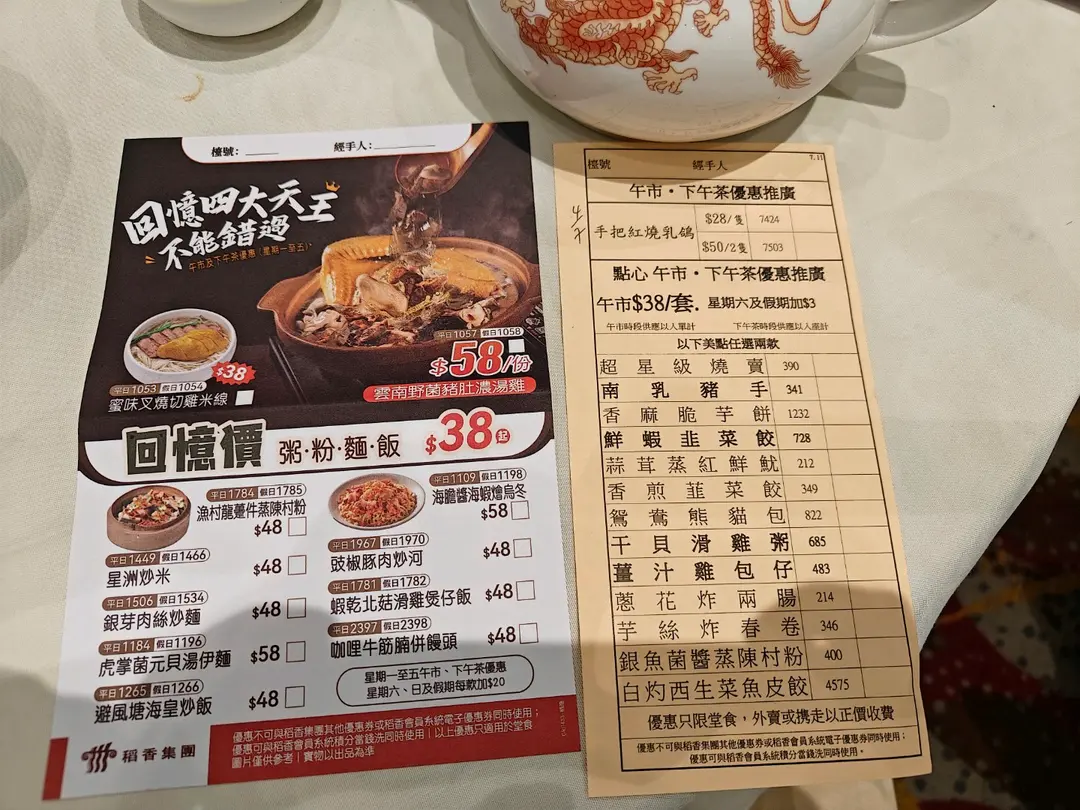 檯號：
經手人：
回憶四大天王
不能錯過
午市及下午茶優惠（星期一至五）
平日1057 假日1058
$58/份
雲南野菌豬肚濃湯雞
$38
平日1053 假日1054
蜜味叉燒切雞米線
回憶價 粥·粉·麵·飯 $38起
平日1784 假日1785
漁村龍躉件蒸陳村粉
$48
平日1449 假日1466
星洲炒米 $48
平日1506 假日1534
銀芽肉絲炒麵 $48
平日1184 假日1196
虎掌菌元貝湯伊麵 $58
平日1265 假日1266
避風塘海皇炒飯 $48
平日1109 假日1198
海膽醬海蝦燴烏冬
$58
平日1967 假日1970
豉椒豚肉炒河 $48
平日1781 假日1782
蝦乾北菇滑雞煲仔飯 $48
平日2397 假日2398
咖喱牛筋腩併饅頭 $48
星期一至五午市、下午茶優惠
星期六、日及假期每款加$20
稻香集團
優惠不可與稻香集團其他優惠券或稻香會員系統電子優惠券同時使用；
優惠可與稻香會員系統積分當錢洗同時使用｜以上優惠只適用於堂食
圖片僅供參考｜實物以出品為準
檯號 經手人 7.11
午市·下午茶優惠推廣
手把紅燒乳鴿
$28/隻 7424
$50/2隻 7503
點心 午市·下午茶優惠推廣
午市$38/套. 星期六及假期加$3
午市時段供應以人單計 下午茶時段供應以人座計
以下美點任選兩款
超星級燒賣 390
南乳豬手 341
香麻脆芋餅 1232
鮮蝦韭菜餃 728
蒜茸蒸紅鮮魷 212
香煎韭菜餃 349
鴛鴦熊貓包 822
干貝滑雞粥 685
薑汁雞包仔 483
蔥花炸兩腸 214
芋絲炸春卷 346
銀魚菌醬蒸陳村粉 400
白灼西生菜魚皮餃 4575
優惠只限堂食，外賣或携走以正價收費
優惠不可與稻香集團其他優惠券或稻香會員系統電子優惠券同時使用；
優惠可與稻香會員系統積分當錢洗同時使用。